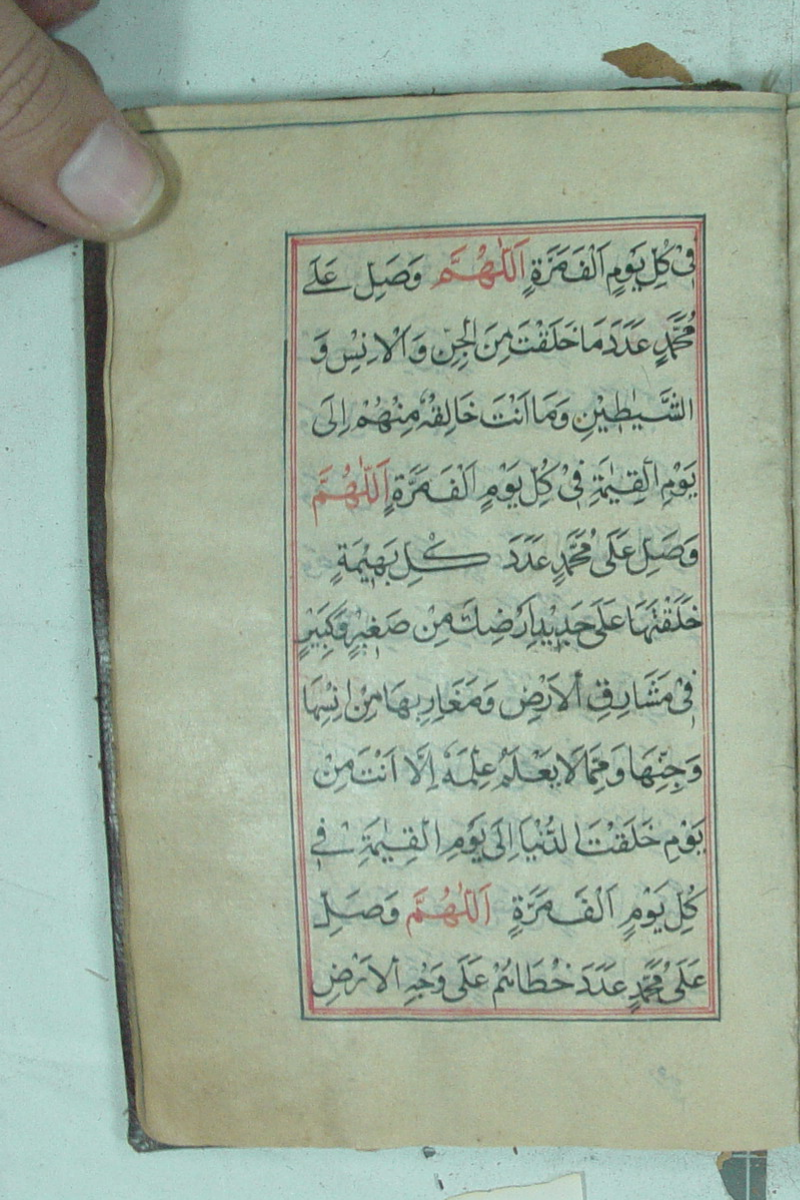 فِیْ كُلِّ يَوْمٍ اَلْفَ مَرَّةٍ اَللّٰهُمَّ وَصَلِّ عَلٰے
مُحَمَّدٍ عَدَدَ مَا خَلَقْتَ مِنَ الْجِنِّ وَالْاِنْسِ وَ
الشَّيٰطِيْنِ وَمَا اَنْتَ خَالِقُهٗ مِنْهُمْ اِلٰى
يَوْمِ الْقِيٰمَةِ فِیْ كُلِّ يَوْمٍ اَلْفَ مَرَّةٍ اَللّٰهُمَّ
وَصَلِّ عَلٰى مُحَمَّدٍ عَدَدَ كُلِّ بَهِيْمَةٍ
خَلَقْتَهَا عَلٰى جَدِيْدِ اَرْضِكَ مِنْ صَغِيْرٍ وَكَبِيْرٍ
فِیْ مَشَارِقِ الْاَرْضِ وَمَغَارِبِهَا مِنْ اِنْسِهَا
وَجِنِّهَا وَمِمَّا لَا يَعْلَمُ عِلْمَهٗ اِلَّا اَنْتَ مِنْ
يَوْمِ خَلَقْتَ الدُّنْيَا اِلٰى يَوْمِ الْقِيٰمَةِ فِیْ
كُلِّ يَوْمٍ اَلْفَ مَرَّةٍ اَللّٰهُمَّ وَصَلِّ
عَلٰى مُحَمَّدٍ عَدَدَ خُطَاهُمْ عَلٰى وَجْهِ الْاَرْضِ